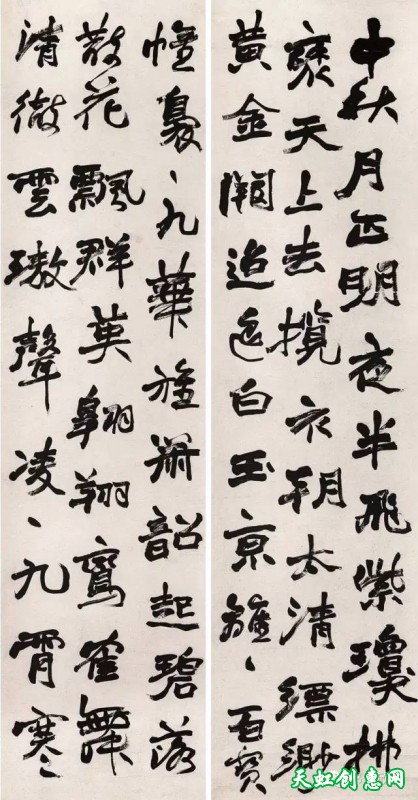 中秋月正明夜半飛紫瓊拂
褎天上去攬衣朝太清縹緲
黃金闕迢白玉京〻百寶
幢裊〻九華旌簫韶起碧落
散花飄群英翱翔鸞雀舞
清徹雲璈聲凌〻九霄寒
天虹创惠网